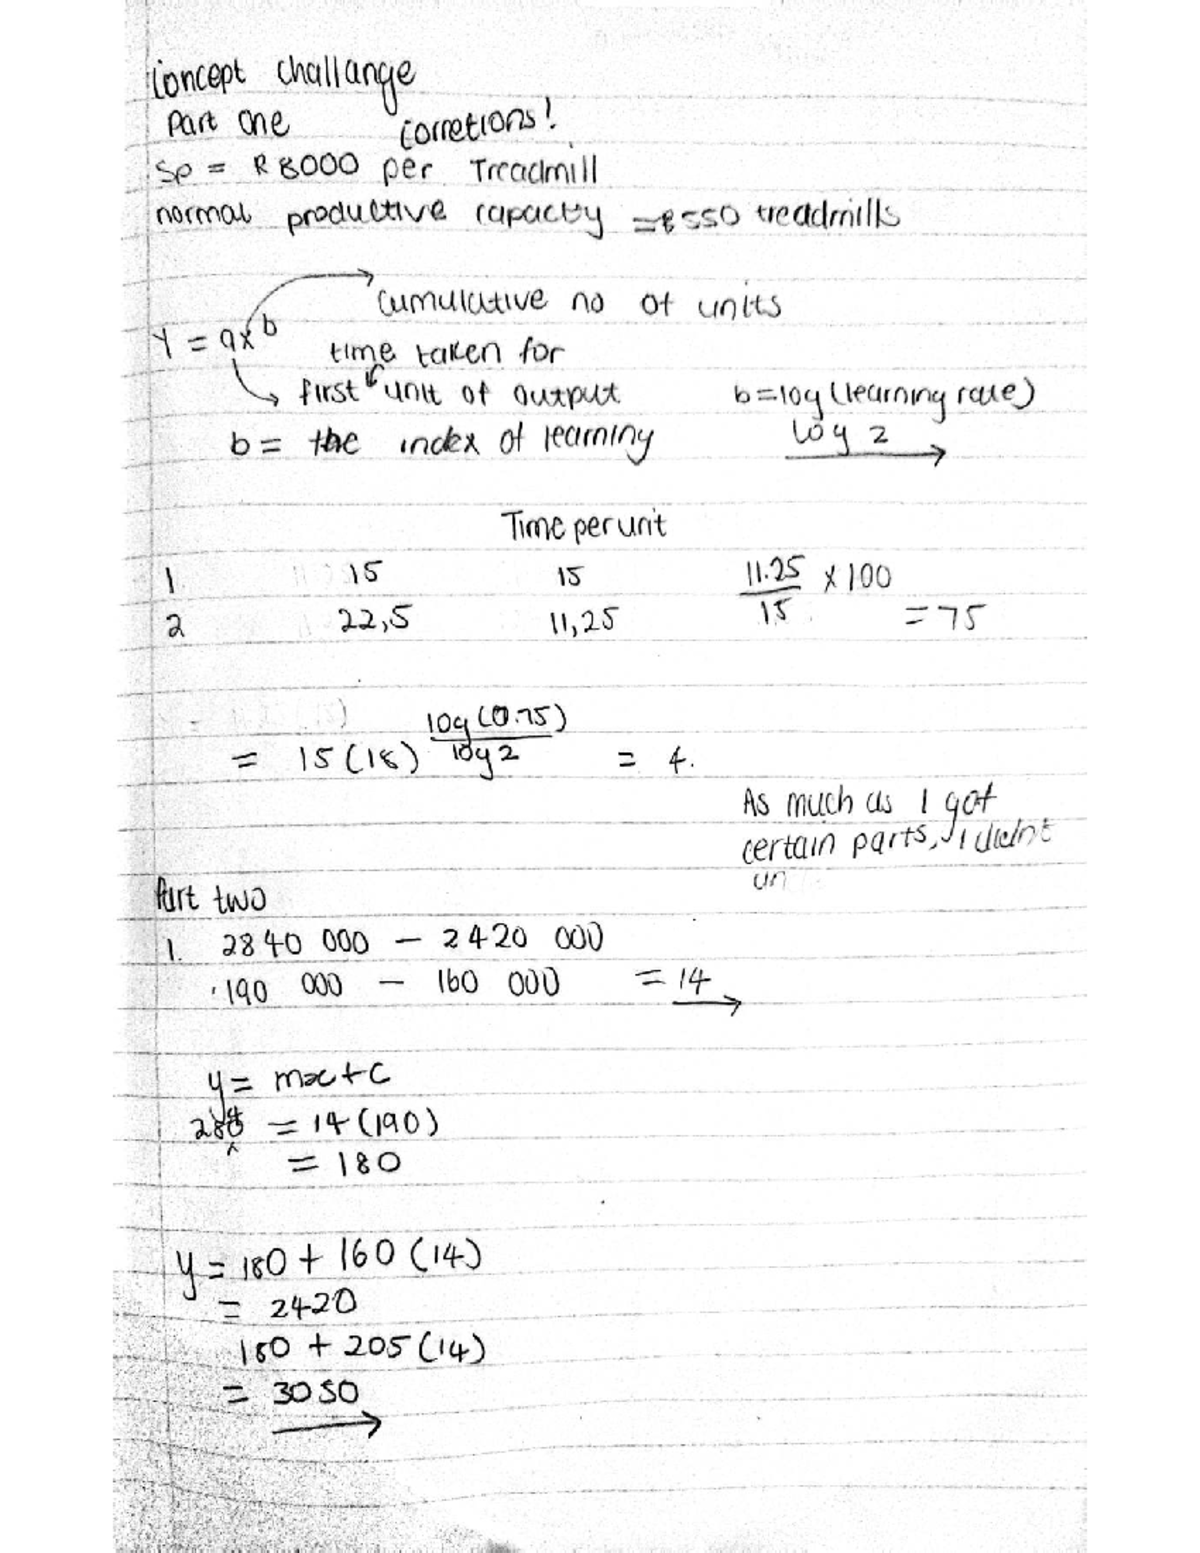 Concept challange
Part One Corretions!
Sp = R 8000 per Treadmill
normal productive capacity = 8550 treadmills
cumulative no of units
Y = ax^b
time taken for
first unit of output b=log (learning rate)
b = the index of learning log 2
Time per unit
1. 15 15 11.25 x 100
2 22,5 11,25 15 = 75
log (0.75)
= 15 (18) log 2 = 4.
As much as I got
certain parts, I didnt
un
Part two
1. 2840 000 - 2420 000
190 000 - 160 000 = 14
y = mx + c
= 14 (190)
= 180
y = 180 + 160 (14)
= 2420
180 + 205 (14)
= 3050